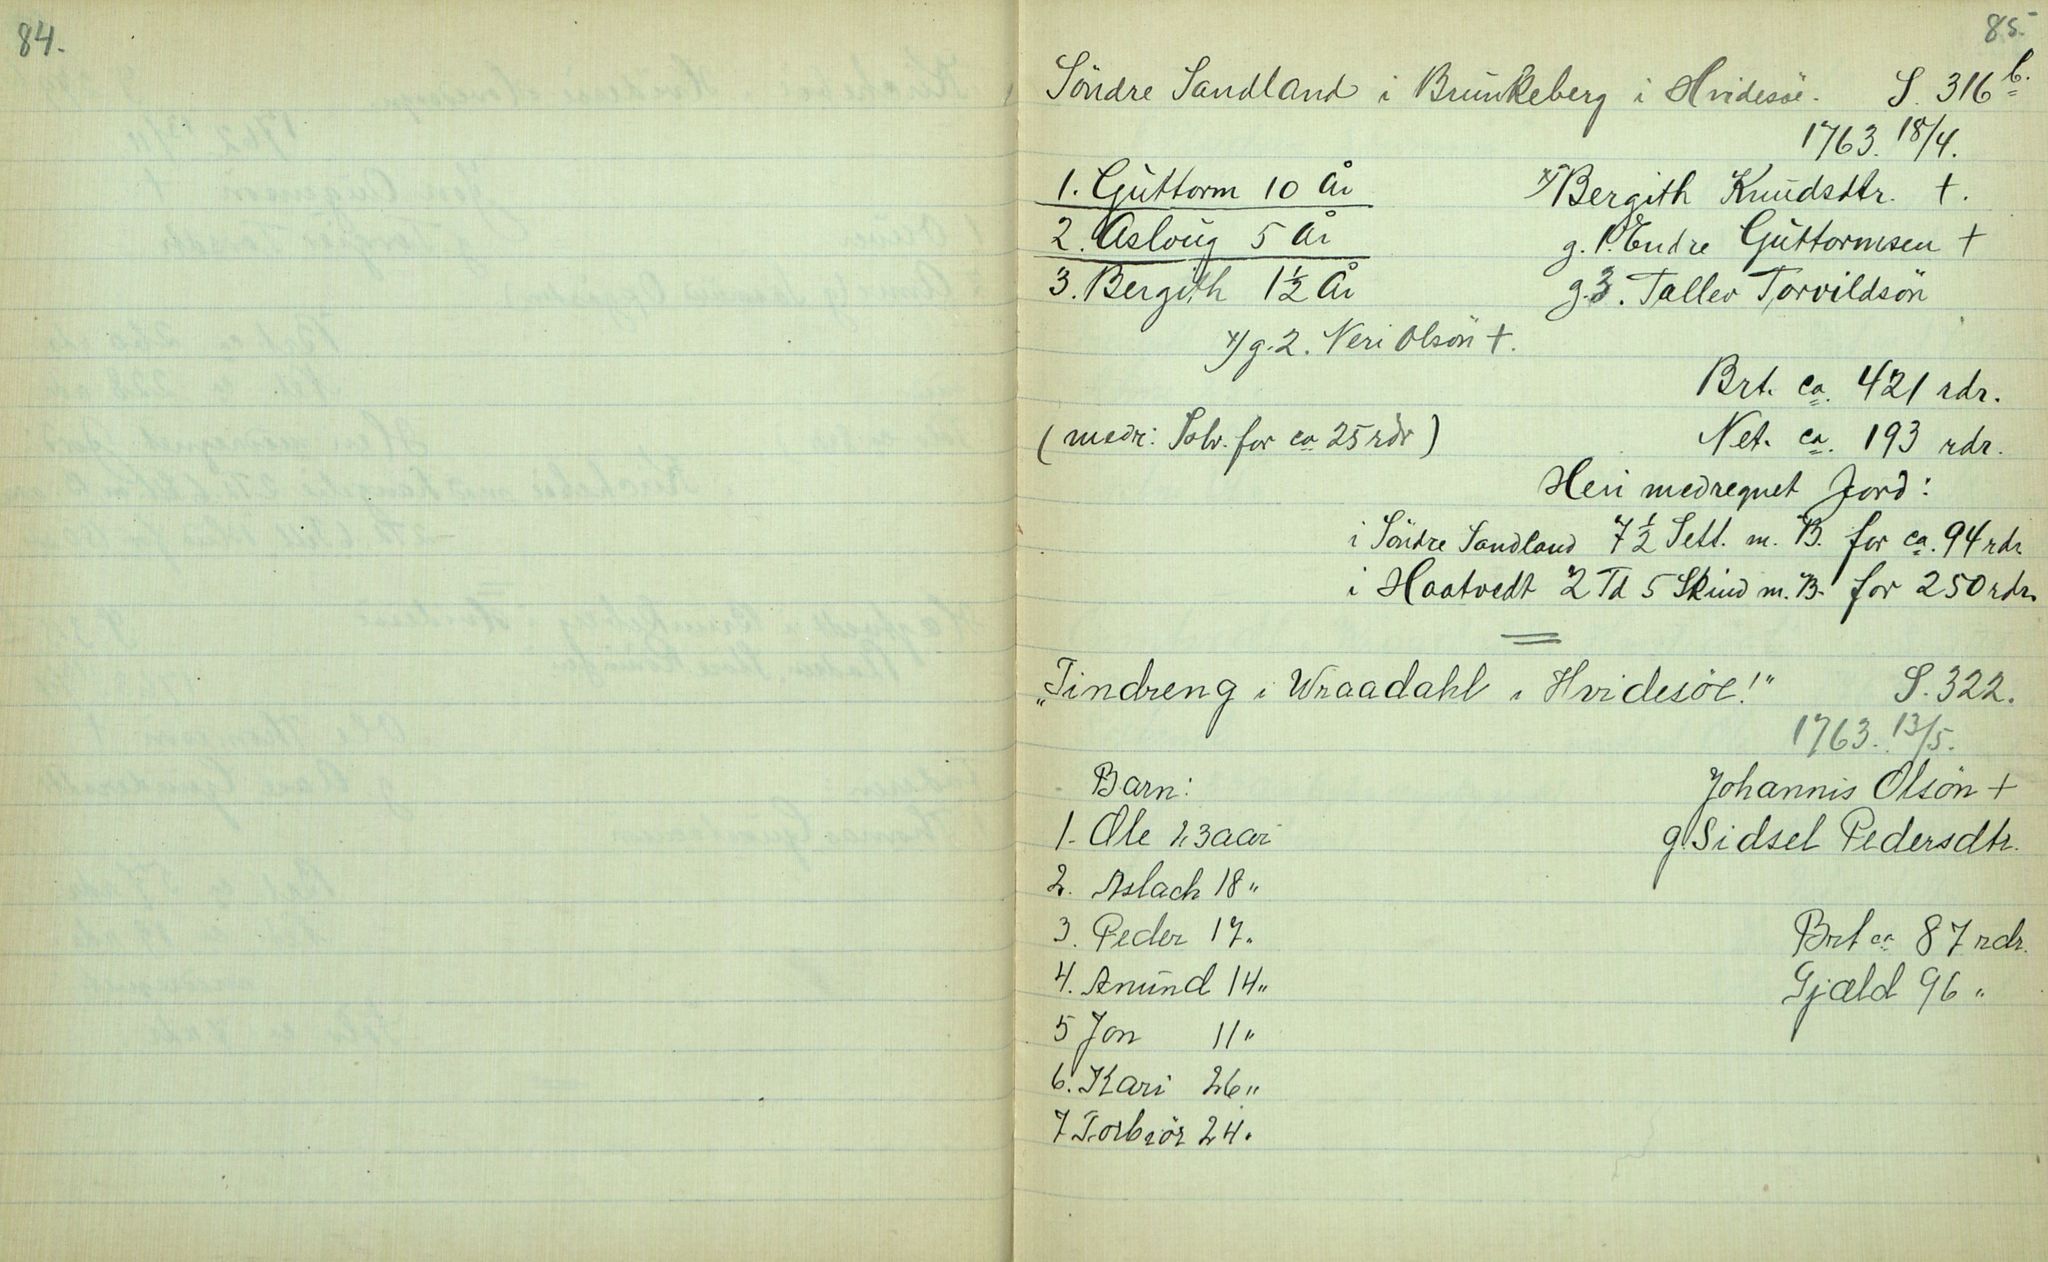 84.
85.
Söndre Sandland i Brunkeberg i Hvidesöe. S. 316 b.
1763. 18/4.
1. Guttorm 10 år x) Bergith Knudsdtr. +.
2. Asloug 5 år g. 1. Endre Guttormsen +
3. Bergith 1½ år g. 3. Tallev Torvildsön
x) g. 2. Neri Olsön +.
Brt. ca. 421 rdr.
(medr: Sölv. for ca 25 rdr) Net. ca. 193 rdr.
Heri medregnet Jord:
i Söndre Sandland 7½ Sett. m. B. for ca. 94 rdr.
i Haatvedt 2 Td 5 Skind m. B. for 250 rdr.
„Tindreng i Wraadahl i Hvidesöe!" S. 322.
1763. 13/5.
Barn: Johannis Olsön +
1. Ole 23 aar g. Sidsel Pedersdtr.
2. Aslach 18 "
3. Peder 17. Brt ca 87 rdr.
4. Anund 14 " Gjæld 96 "
5 Jon 11 "
6. Kari 26 "
7 Torbiör 24.